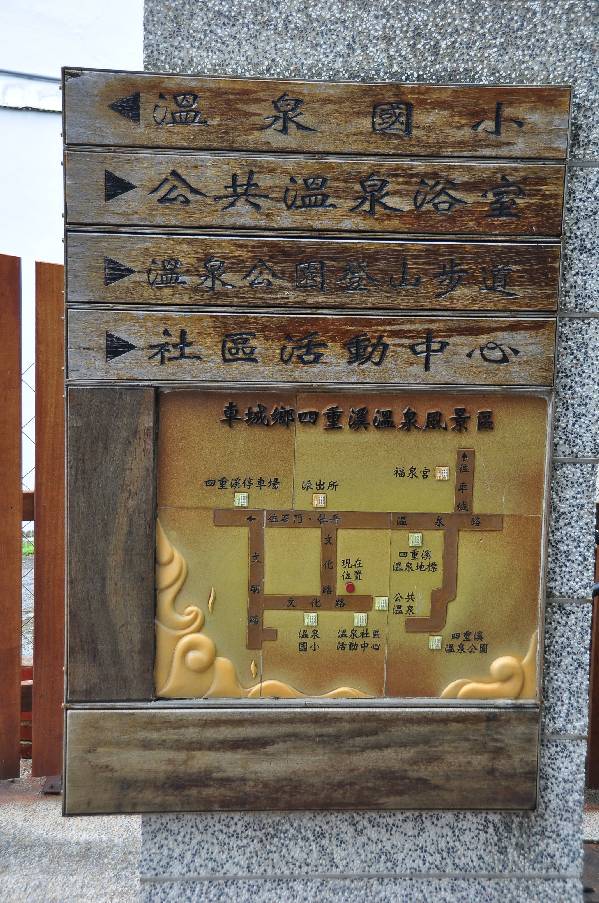 溫泉國小
公共溫泉浴室
溫泉公園登山步道
社區活動中心
車城鄉四重溪溫泉風景區
福泉宮
往車城
四重溪停車場
派出所
往石門·牡丹
溫泉路
文化路
現在
位置
四重溪
溫泉地標
文化路
公共
溫泉
溫泉
國小
溫泉社區
活動中心
四重溪
溫泉公園